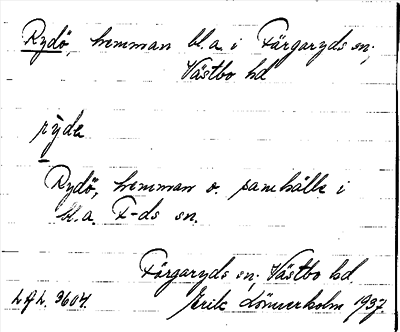 Rydö, hemman bl.a. i Färgaryds sn;
Västbo hd
rỳda
Rydö, hemman o. samhälle i
bl.a. F-ds sn.
Färgaryds sn; Västbo hd.
L.A.L. 3604. Erik Lönnerholm 1937.